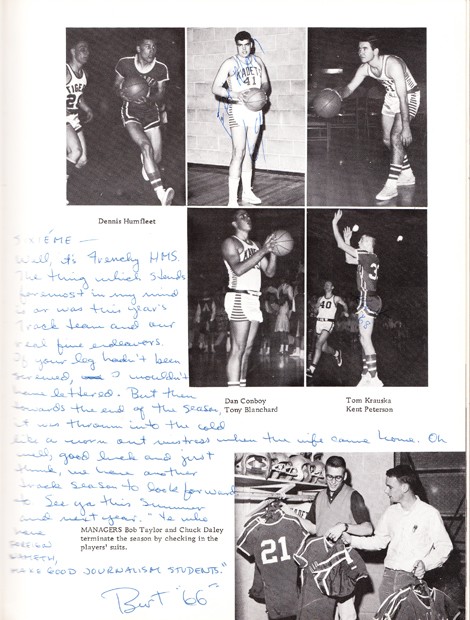 TIGER
2
KADETS
41
Dennis Humfleet
SIXIÉME —
Well, it's Frenchy HMS.
The thing which stands
foremost in my mind
is or was this year's
Track team and our
real fine endeavors.
If your leg hadn't been
screwed, I wouldn't
have lettered. But then
towards the end of the season,
it was thrown into the cold
like a worn out mistress when the wife came home. Oh
well, good luck and just
think, we have another
track season to look forward
to. See ya this summer
and next year. "Ye who
have
FOREIGN
MAKE GOOD JOURNALISM STUDENTS."
Burt '66
40
3
Dan Conboy
Tony Blanchard
Tom Krauska
Kent Peterson
MANAGERS Bob Taylor and Chuck Daley
terminate the season by checking in the
players' suits.
21